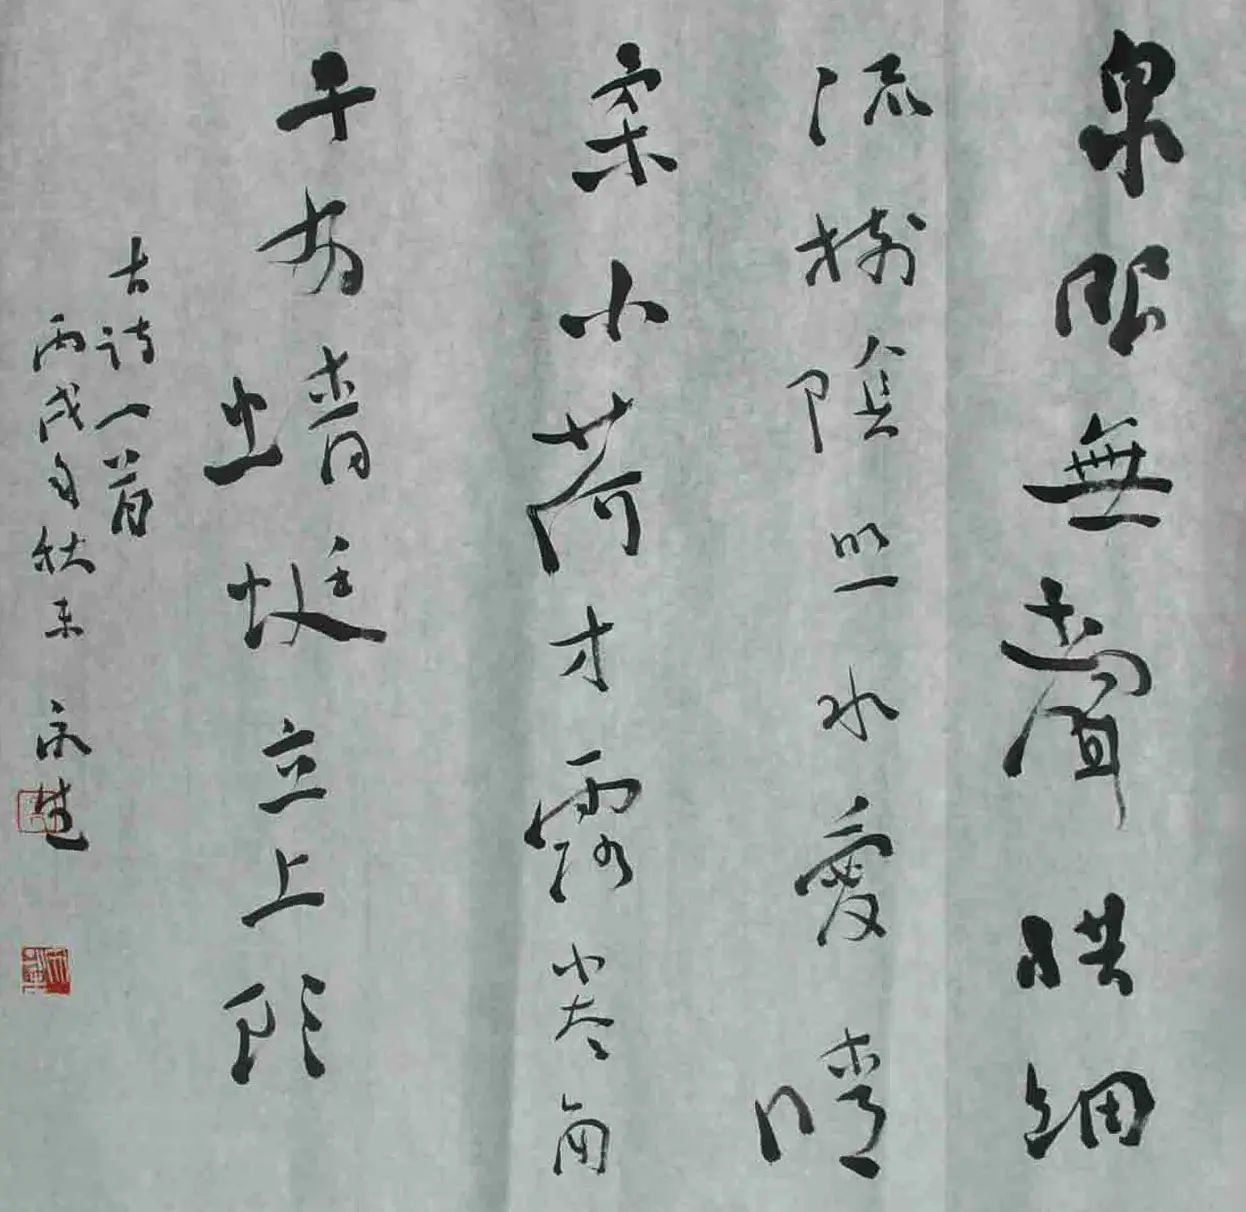 泉眼無聲惜細
流樹陰照水愛晴
柔小荷才露尖々角
早有蜻蜓立上頭
古詩一首
丙戌秋末